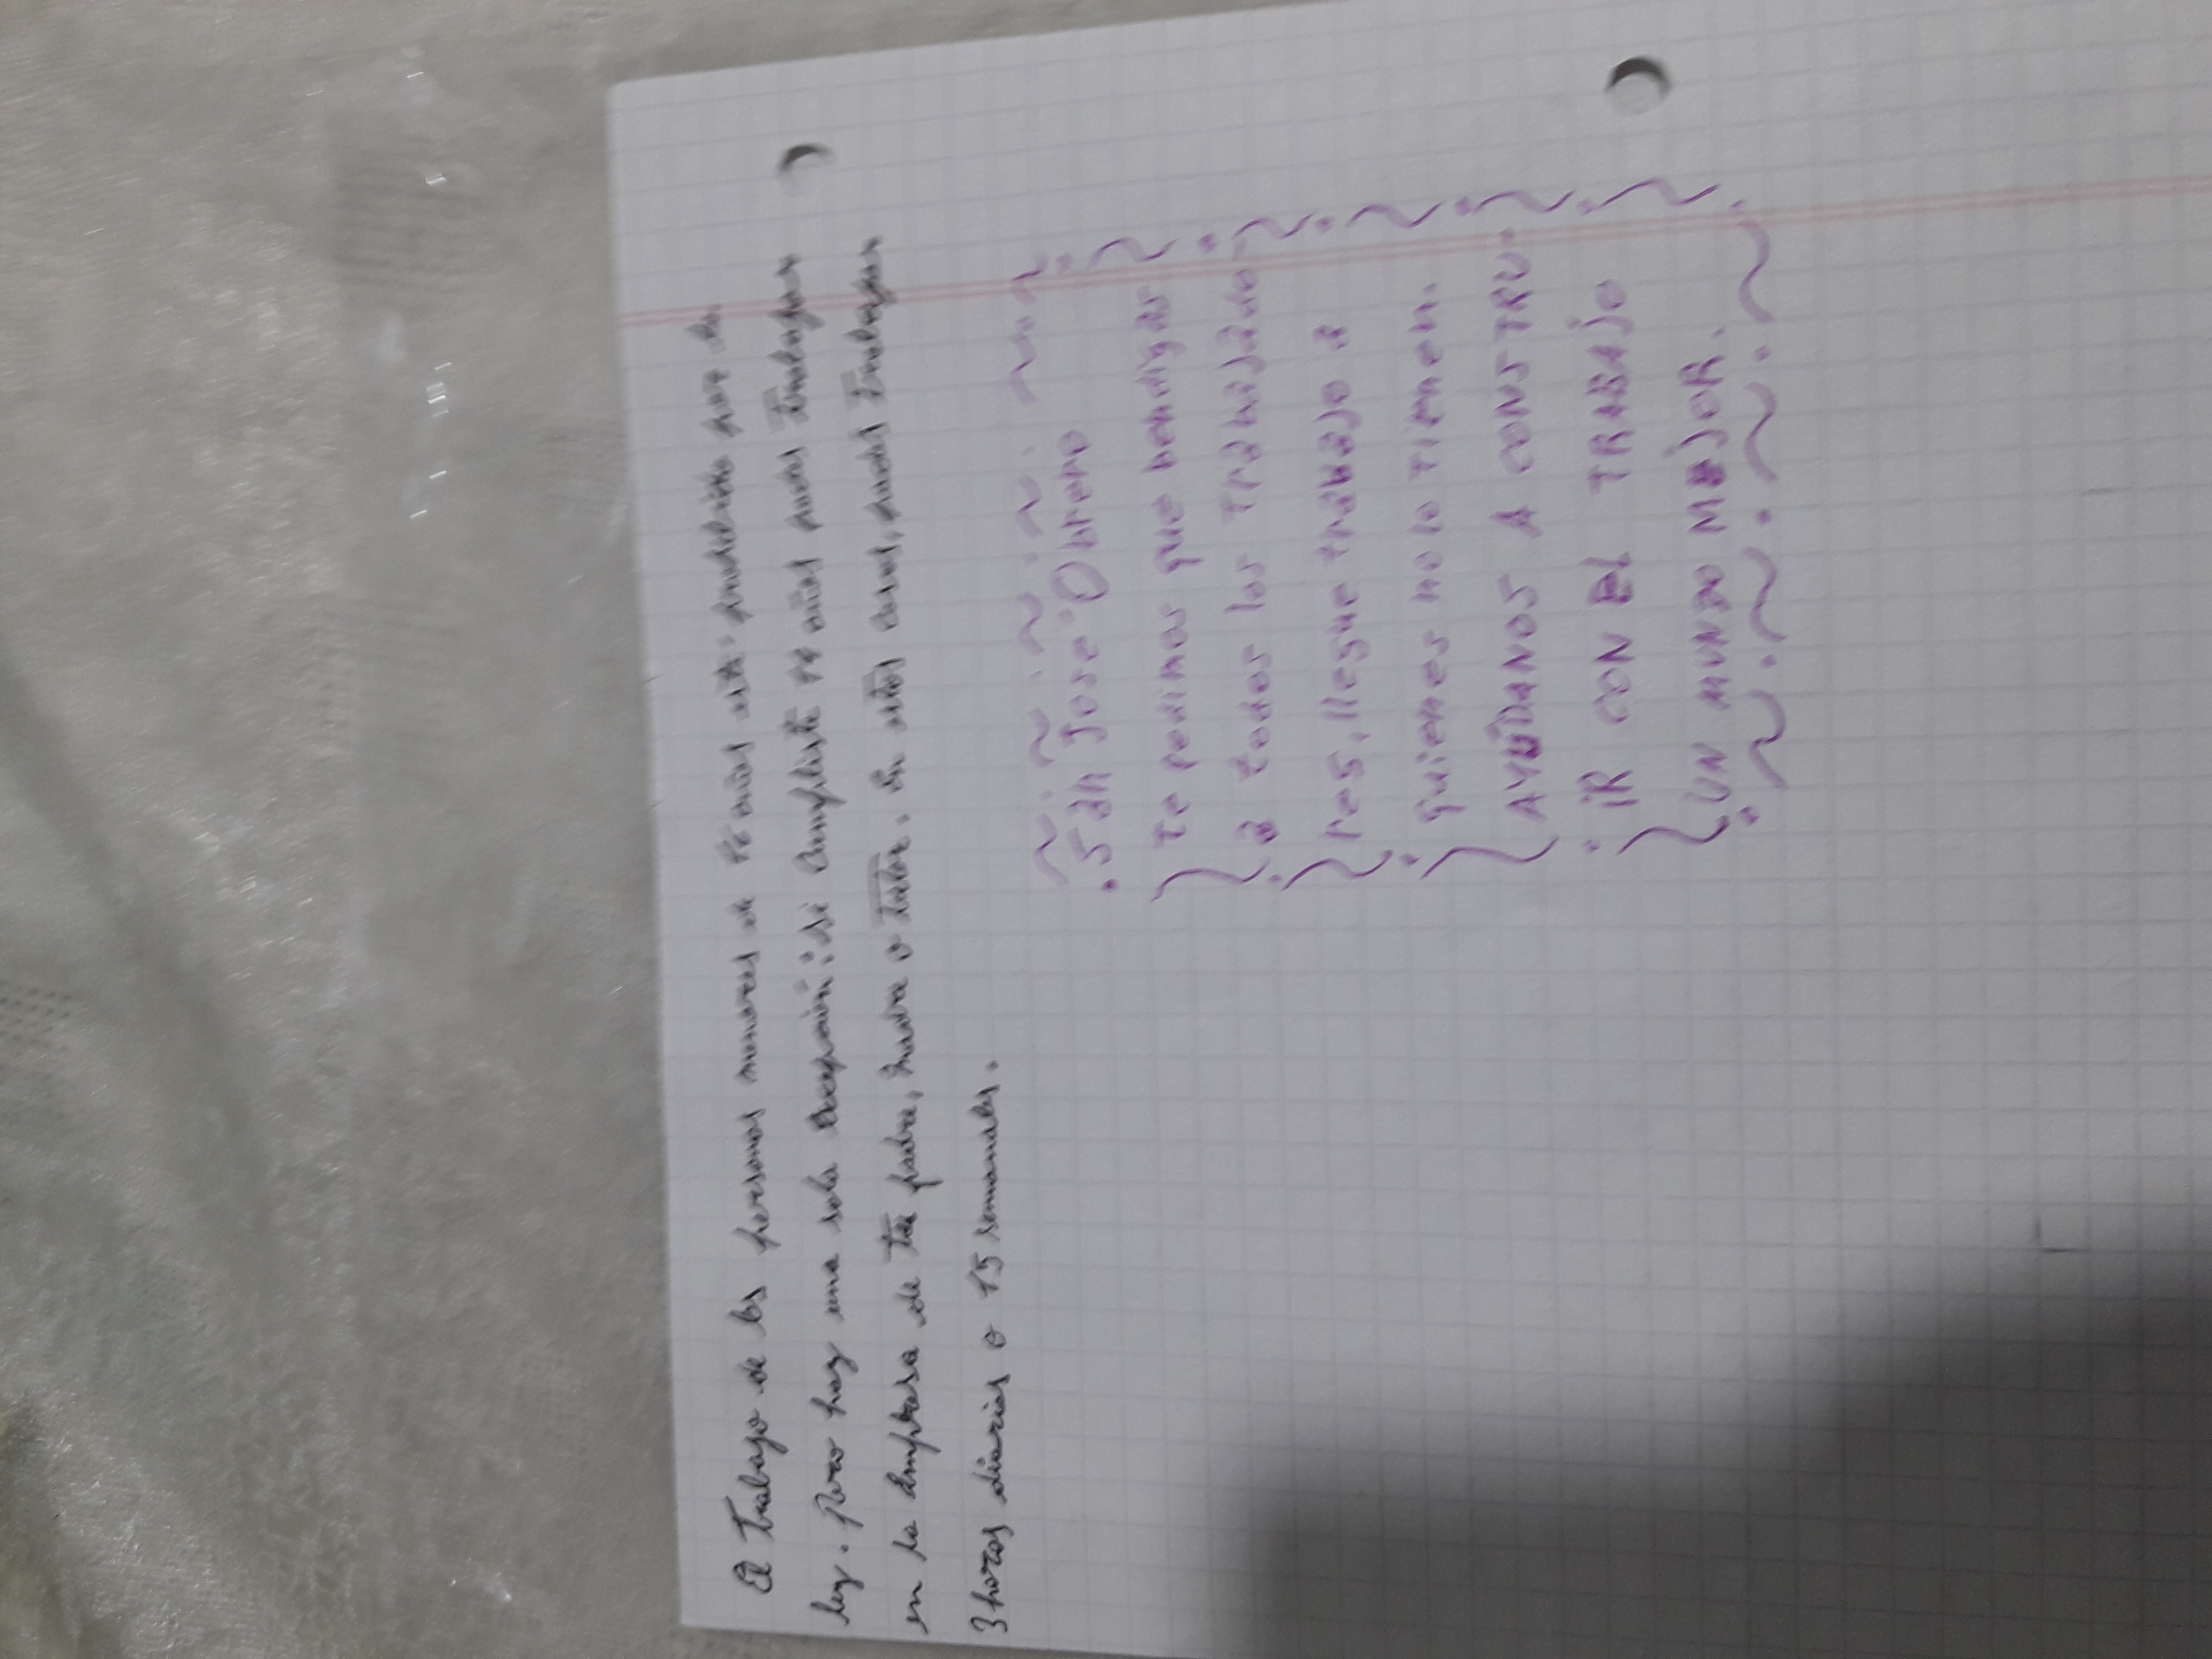 El trabajo de las personas menores de 16 años está prohibido por la
ley. Pero hay una sola excepción: si cumpliste 14 años podés trabajar
en la empresa de tu padre, madre o tutor. En estos casos, podés trabajar
3 horas diarias o 15 semanales.
San José Obrero
te pedimos que bendigas
a todos los trabajado
res, llegue trabajo a
quienes no lo tienen.
AYÚDANOS A CONSTRU-
IR CON EL TRABAJO
UN MUNDO MEJOR.